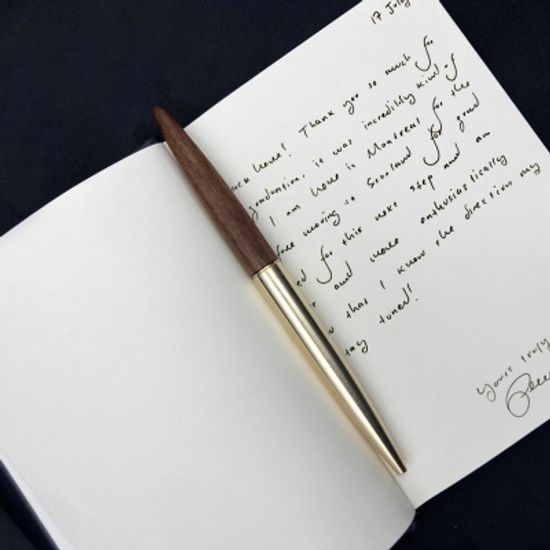 17 July
much love! Thank you so much for
graduation, it was incredibly kind of
I am here in Montreal for the
moving to Scotland for good
for this next step and am
and more enthusiastically
that I know the direction my
stay tuned!
Yours truly